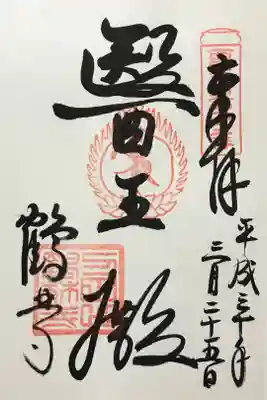 奉拝
平成三十年
三月二十五日
醫王殿
鶴林寺